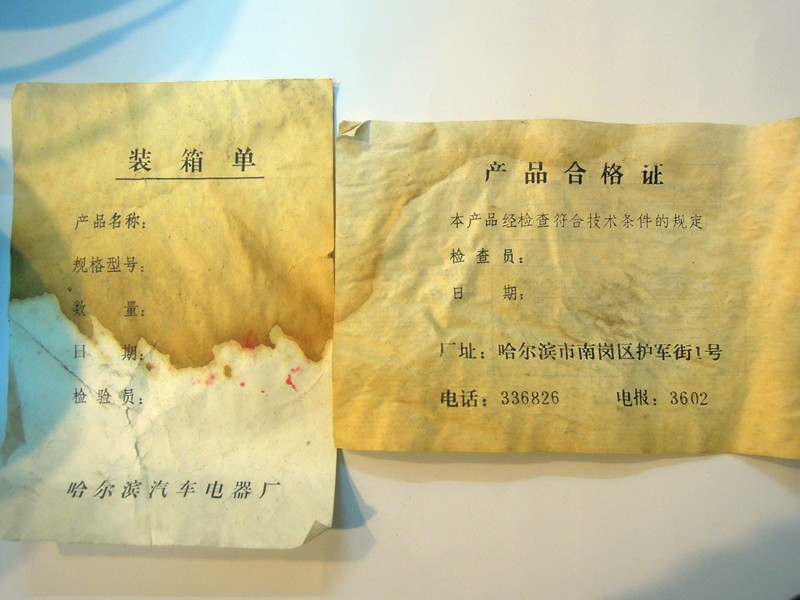 装箱单
产品名称：
规格型号：
数量：
日期：
检验员：
哈尔滨汽车电器厂
产品合格证
本产品经检查符合技术条件的规定
检查员：
日期：
厂址：哈尔滨市南岗区护军街1号
电话：336826 电报：3602